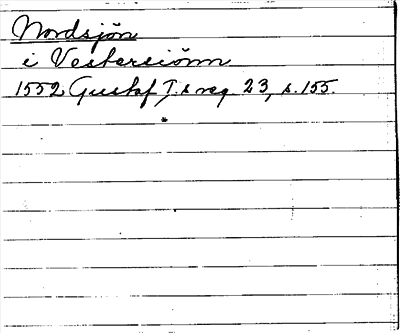 Nordsjön
i Vestersiönn
1552 Gustaf I:s reg 23, s. 155.